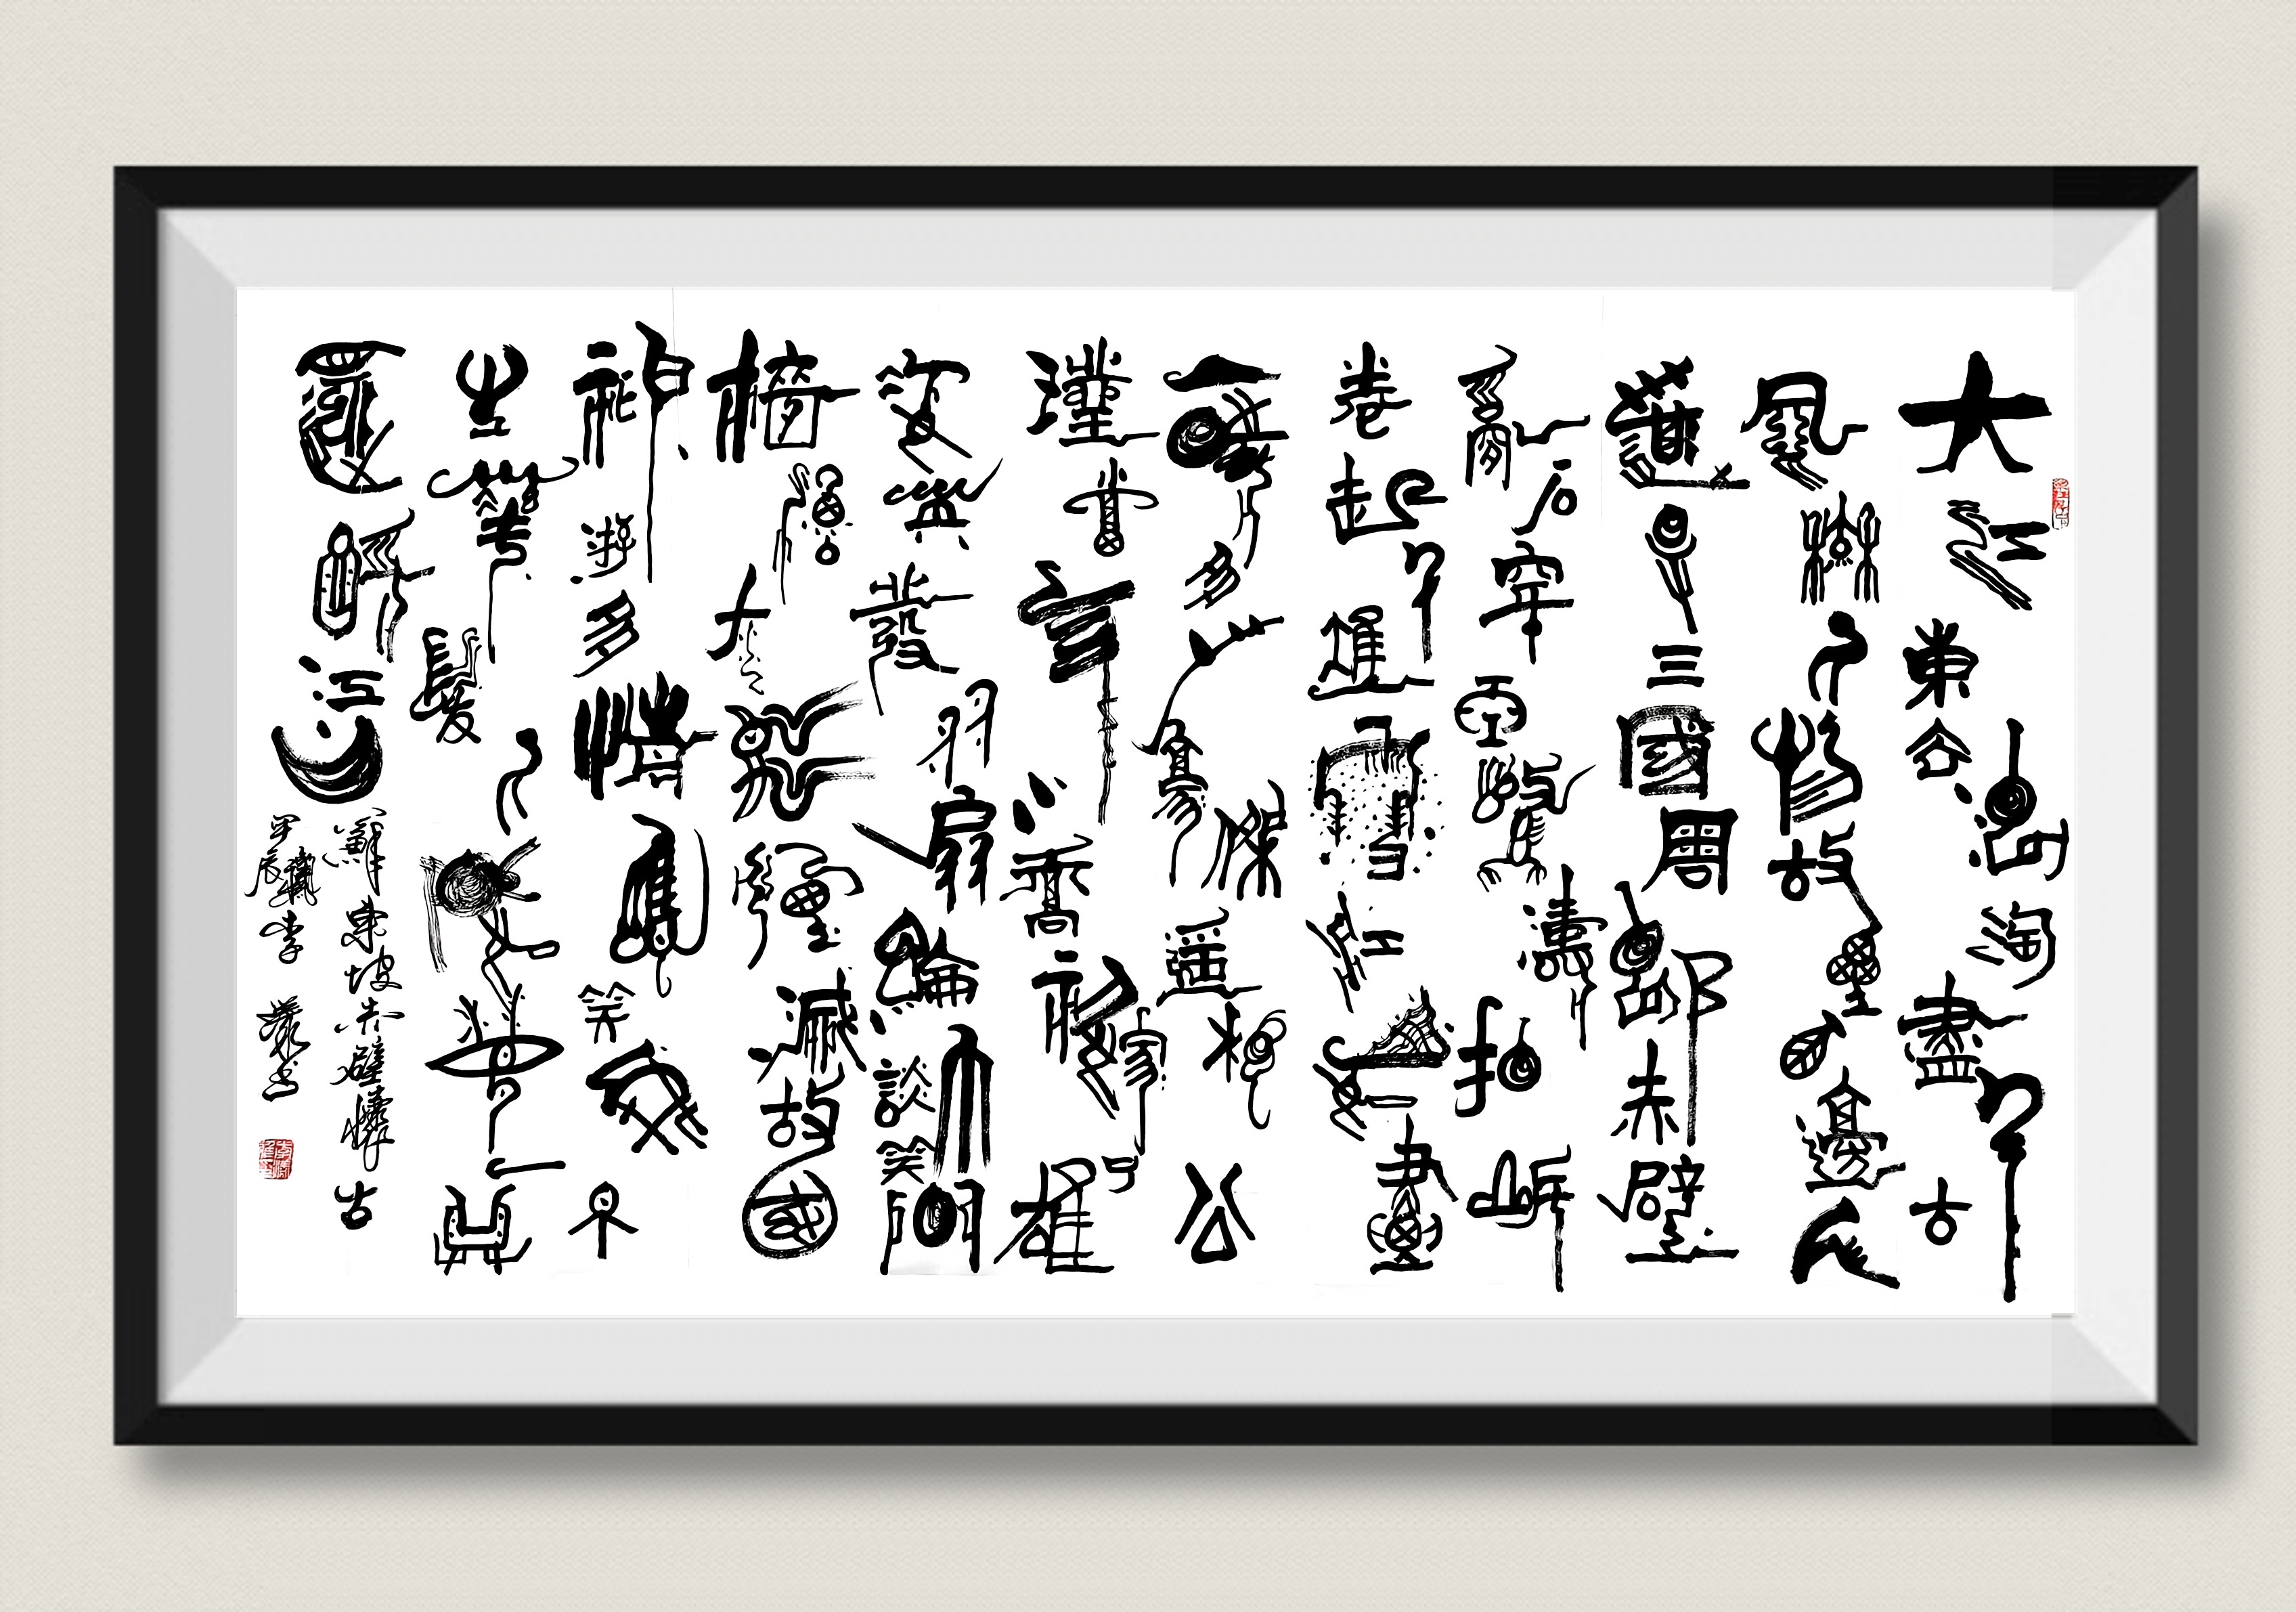 大江東去浪淘盡千古
風流人物故壘西邊人
道是三國周郎赤壁
亂石穿空驚濤拍岸
卷起千堆雪江山如畫
一時多少豪傑遥想公
瑾當年小喬初嫁了雄
姿英發羽扇綸巾談笑間
檣櫓灰飛煙滅故國
神游多情應笑我早
生華髮人間如夢一尊
還酹江月
蘇東坡赤壁懷古
甲辰龝李書